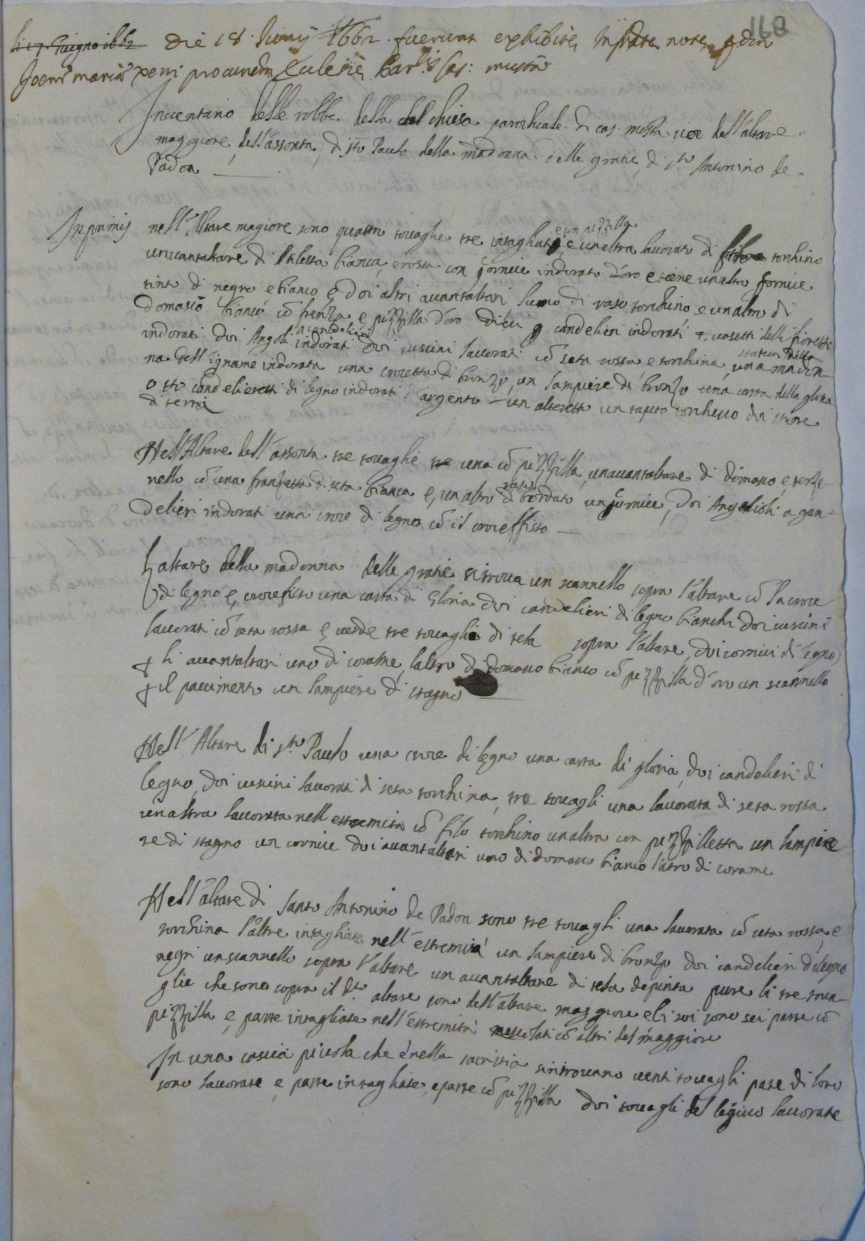 168
li 17 Giugno 1662 Die 18 Junij 1662 fuerunt exhibite infratte note
Joem mariam procurem Ecclesie
Inventario delle robbe della del chiesa parochiale di cas: musta cioe dell'altare
maggiore, dell'assonta, di sto Paulo della madonna delle gratie, di sto Antonino de
Padoa
Inprimis nell'Altare magiore sono quattro tovaglie tre intagliate, e un'altra lavorata di torchino
e un pizzillo
un'avantaltare di bianca, e rossa con fornice indorato d'oro e tiene un altro fornice
tinto di negro e bianco e doi altri avantaltari uno di raso torchino e un altro di
Domasco bianco cō frenza, e pizzilla d'oro candelieri indorati 4 vasetti delli fioretti
indorati doi Angeli indorati doi cuscini lavorati cō seta rossa e torchina, una madon
a candelieri statua nilla
na dell'igname indorata una crocetta di bronzo, un lampiere di bronzo una carta della gloria
otto candelieretti di legno indorati d'argento un altaretto un tapito torchino doi store
di terra
Nell'Altare dell'assonta tre tovaglie tre una cō pizzilla, un'avantaltare di dimasco e
nello cō una franzetta di seta bianca e, un altro di bordato un fornice, Doi Angelichi a gan
delieri indorati una croce di legno cō il croceffisso
L'altare della madonna delle gratie si trova un scannello sopra l'altare cō la croce
di legno e, crocefisso una carta di Gloria doi candelieri di legno bianchi doi cuscini
lavorati cō seta rossa e verde tre tovaglie di tela sopra l'altare, doi cornici di legno
p li avantaltari uno di corame, l'altro di domasco bianco cō pizzilla d'oro un scannello
p il pavimento un lampiere di stagno
Nell'Altare di sto Paulo una croce di legno una carta di gloria, doi candelieri di
legno, doi cuscini lavorati di seta torchina, tre tovagli una lavorata di seta rossa
un altra lavorata nell'estremità cō filo torchino un altra con pizzilletta un lampie
re di stagno un cornice doi avantaltari uno di domasco bianco l'altro di corame
Nell'altare di Santo Antonino de Padoa sono tre tovagli una lavorata cō seta rossa e
torchina l'altre intagliate nell'estremità un lampiere di bronzo doi candelieri di legno
negri un scannello sopra l'altare un avantaltare di tela depinta pure li tre tova
glie che sono sopra il dto altare sono dell'altare maggiore e li soi sono sei parte cō
pizzilla e, parte intagliate nell'estremità mescolati cō altri del maggiore
In una cascia picola che è nella sacristia si ritrovano venti tovagli parte di loro
sono lavorate, e, parte intagliate, e parte cō pizzilla doi tovagli del legivo lavorate